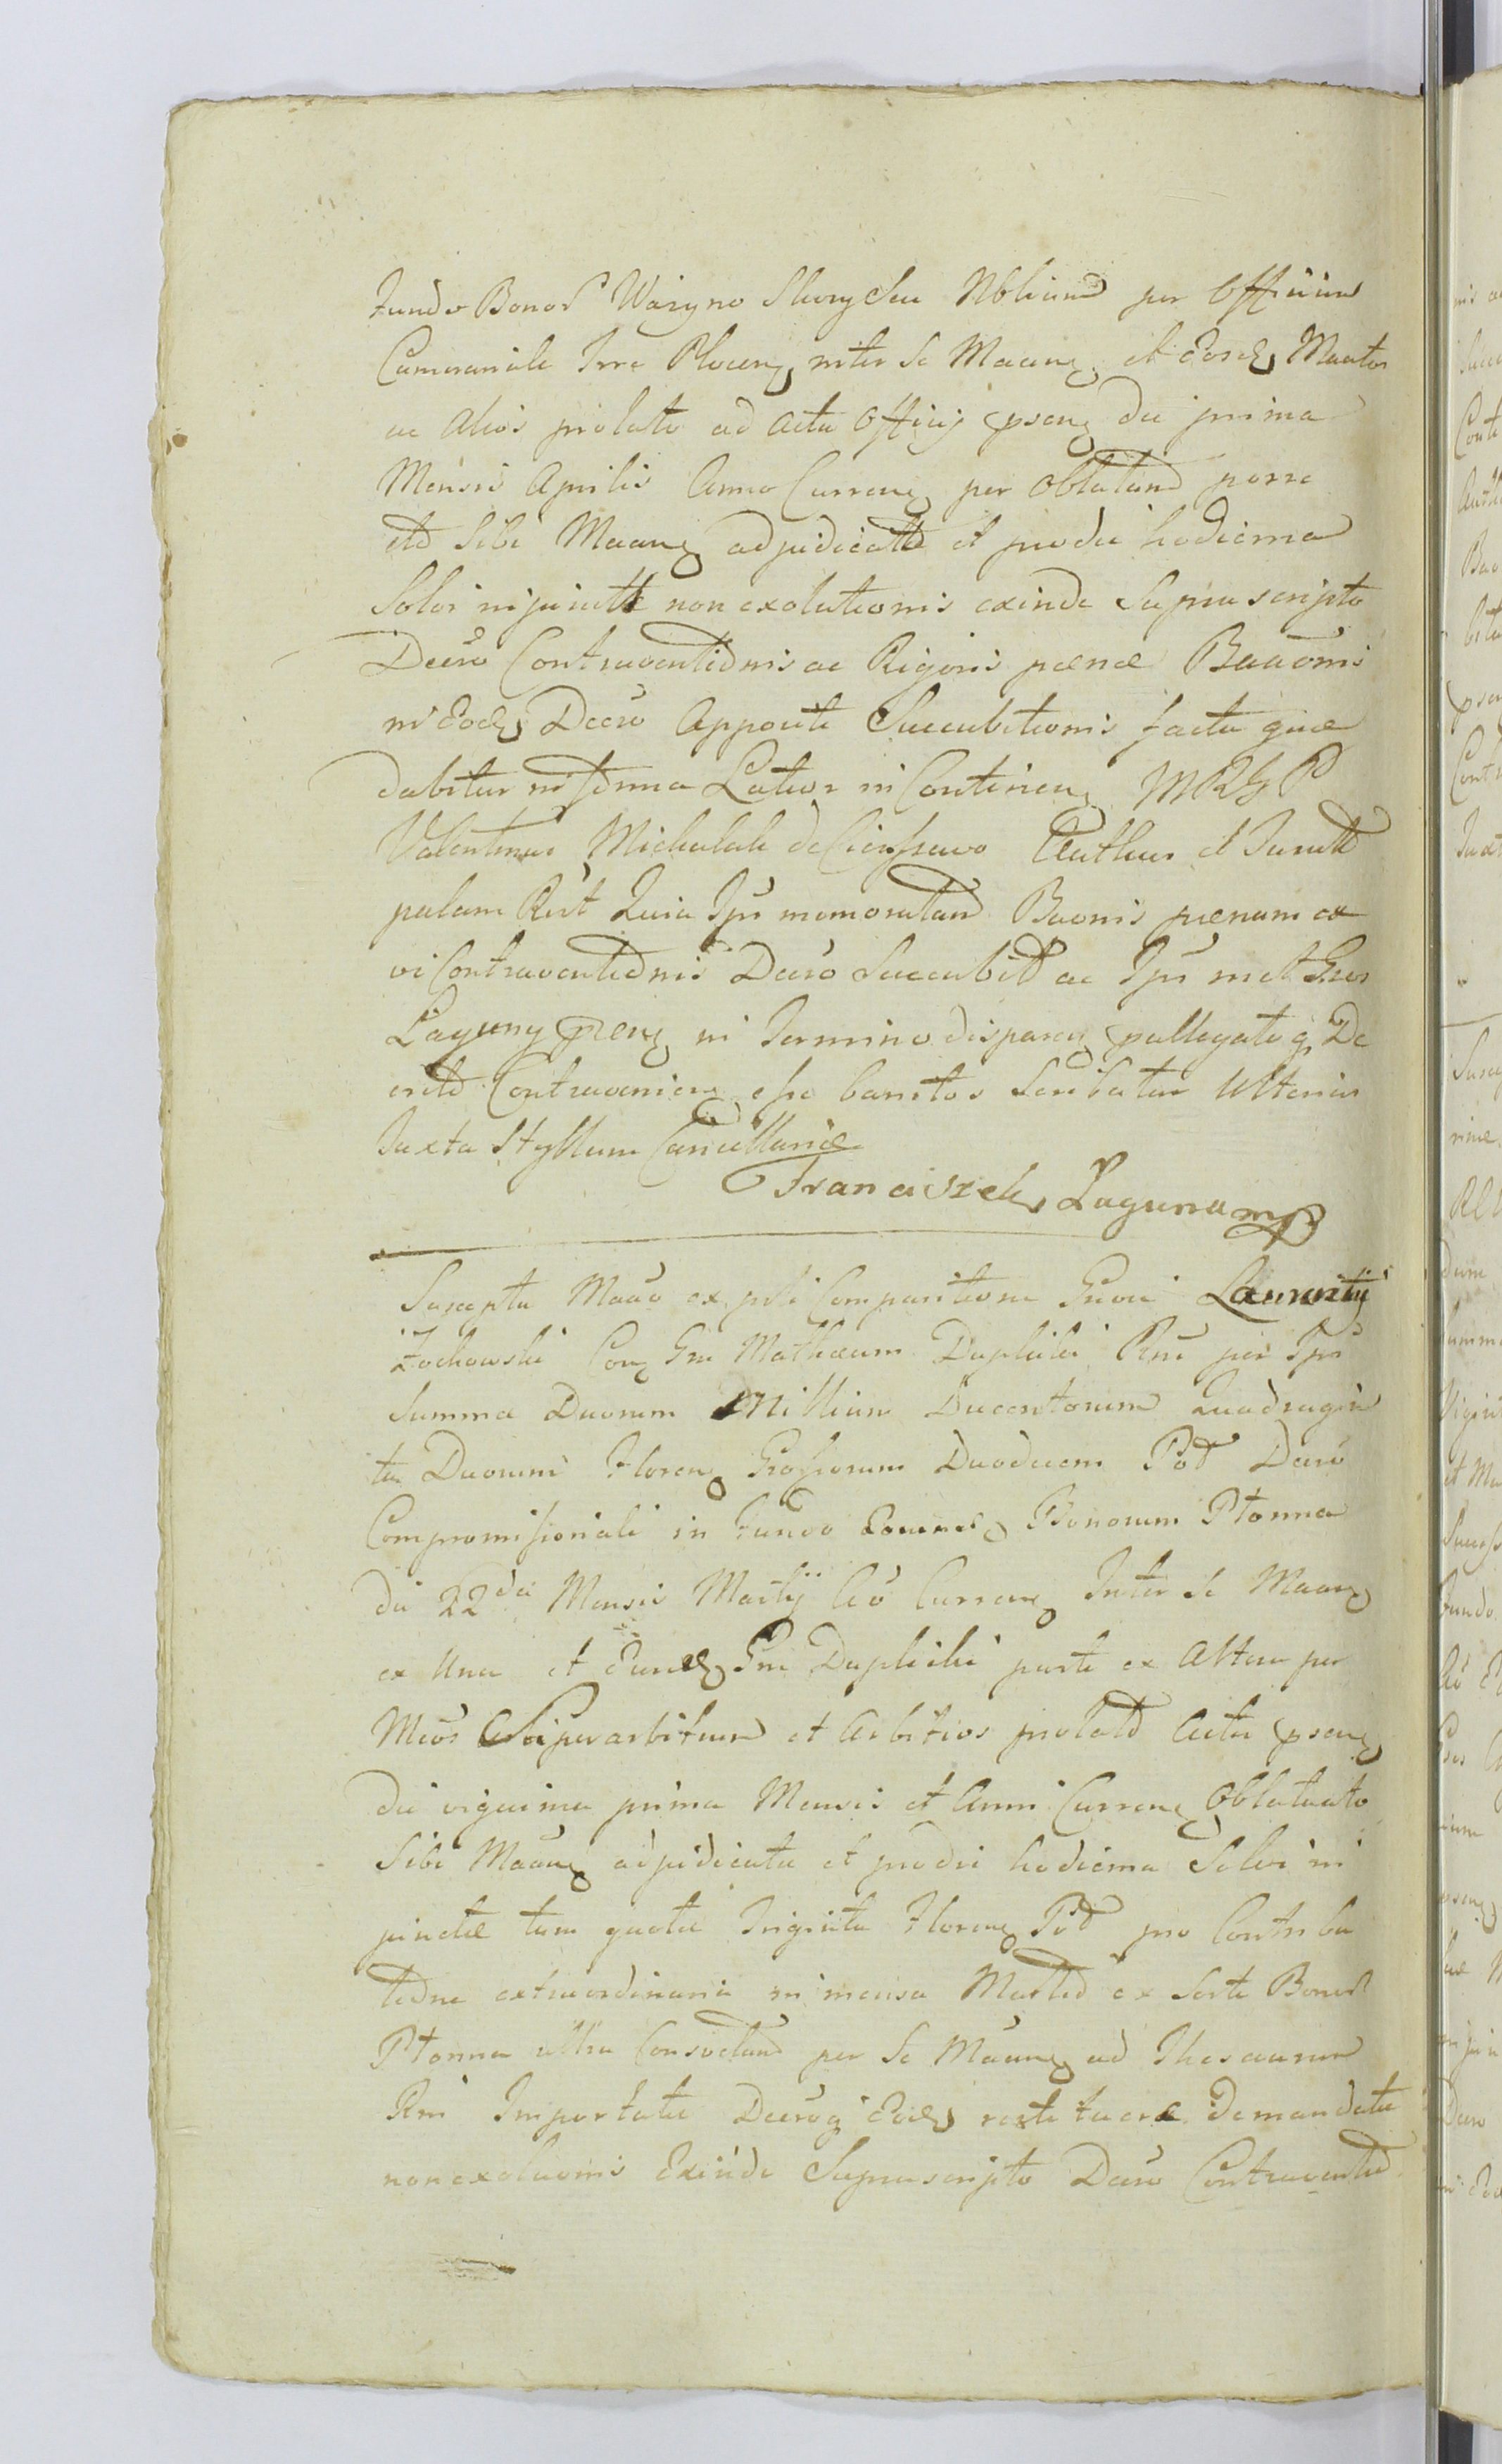 Fundo Bonor Wazyno Skory Seu Nblium per Officium
Camerariale Trre Plocen inter Se Maan et Eosd Maatos
ac Alios prolato ad Acta Officij psen die prima
Mensis Aprilis Anno Curren per Oblatam porre
cto Sibi Maan adjudicatae et pro die hodierna
Solvi injunctae non exolutionis exinde Suprascripto
Decro Contraventionis ac Rigoris paenae Bannonis
in Eod Decro Apposite Succubitionis facta quae
dabitur in forma Latior in Continen MRGP
Valentinus Michalak de Ciensrewo Authen et Juratt
palam Rvit Quia Ips memoratam Baonis paenam ex
vi Contraventionis Decro Succubit ac Ips met Gsos
Laguny psen in Termino disparen pallegatoq De
creto Contravenien esse banitos Scribatur Ulterius
Juxta Styllum Cancellariae
Franciszek Laguna mp
Suscepta Maao ex psli Comparitione Gnosi Laurentij
Żochowski Con Gm Mathaeum Duplicki Rne per Ips
Summa Duorum Millium Ducentorum Quadragin
ta Duorum Floren Grossorum Duodecem Pol Decro
Compromissionali in Fundo Bonorum Płonna
die 22da Mensis Martij Ao Curren Inter Se Maan
ex Una et Eund Gm Duplicki parte ex Altera per
Mcos Superarbitrum et Arbitros prolato Acta psen
die vigesima prima Mensis et Anni Curren Oblatuato
Sibi Maan adjudicata et pro die hodierna Solvi in
junctae tum quotae Triginta Floren Pol pro Contribu
tione extraordinaria in mense Martio ex Sorte Bonor
Płonna ultra Consvetam per Se Maan ad Thesaurum
Rni Importatae Decroq Eod restituere demandatae
non exoluonis Exinde Suprascripto Decro Contraventio